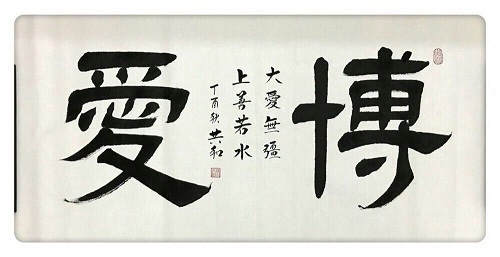 博愛
大愛無疆
上善若水
丁酉秋 共和